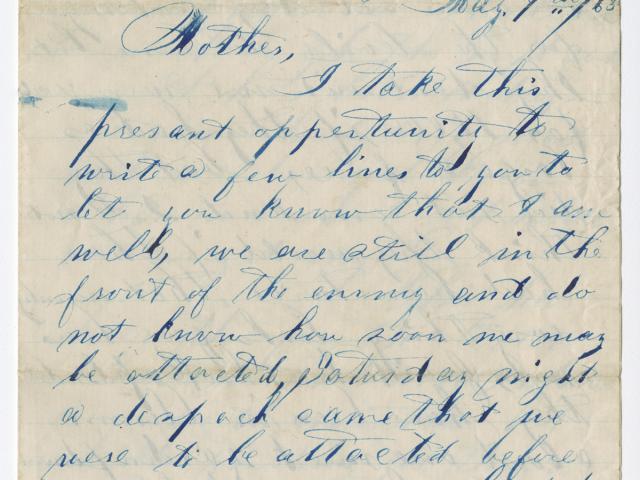 May
Mother,
I take this
presant oppertunity to
write a few lines to you to
let you know that I am
well, we are still in the
front of the enemy and do
not know how soon we may
be attacted, Saturday night
a despach came that we
were to be attacted before